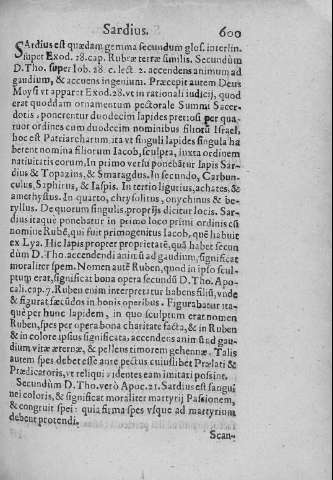 Sardius. 600
SArdius est quædam gemma secundum glos. interlin.
super Exod. 28. cap. Rubræ terræ similis. Secundùm
D. Tho. super Iob. 28. c. lect. 2. accendens animum ad
gaudium, & acuens ingenium. Præcepit autem Deus
Moysi vt apparet Exod. 28. vt in rationali iudicij, quod
erat quoddam ornamentum pectorale Summi Sacer-
dotis, ponerentur duodecim lapides pretiosi per qua-
tuor ordines cum duodecim nominibus filiorũ Israel,
hoc est Patriarcharum ita vt singuli lapides singula ha
berent nomina filiorum Iacob, sculpta, iuxta ordinem
natiuitatis eorum. In primo versu ponebãtur lapis Sar-
dius & Topazius, & Smaragdus. In secundo, Carbun-
culus, Saphirus, & Iaspis. In tertio ligurius, achates, &
amethystus. In quarto, chrysolitus, onychinus & be-
ryllus. De quorum singulis, proprijs dicitur locis. Sar-
dius itaque ponebatur in primo loco primi ordinis cũ
nomine Rubẽ, qui fuit primogenitus Iacob, quẽ habuit
ex Lya. Hic lapis propter proprietatẽ, quã habet secun
dùm D. Tho. accendendi animũ ad gaudium, significat
moraliter spem. Nomen autẽ Ruben, quod in ipso scul-
ptum erat, significat bona opera secundũ D. Tho. Apo-
cali. cap. 7. Ruben enim interpretatur habens filiũ, vnde
& figurat fœcũdos in bonis operibus. Figurabatur ita-
què per hunc lapidem, in quo sculptum erat nomen
Ruben, spes per opera bona charitate facta, & in Ruben
& in colore ipsius significata, accendens animũ ad gau-
dium vitæ æternæ, & pellens timorem gehennæ. Talis
autem spes debet esse ante pectus cuiuslibet Prælati &
Prædicatoris, vt reliqui videntes eam imitari possint.
Secundùm D. Tho. verò Apoc. 21. Sardius est sangui
nei coloris, & significat moraliter martyrij Passionem,
& congruit spei: quia firma spes vsque ad martyrium
debent protendi.
Scan-